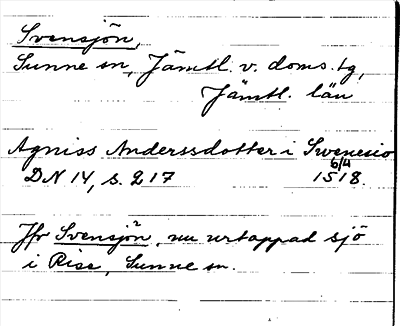 Svensjön,
Sunne sn, Jämtl. v. doms.tg,
Jämtl. län
Agniss Anderssdotter i Swenesio
6/4
DN 14, s. 217 1518.
Jfr Svensjön, nu urtappad sjö
i Rise, Sunne sn.